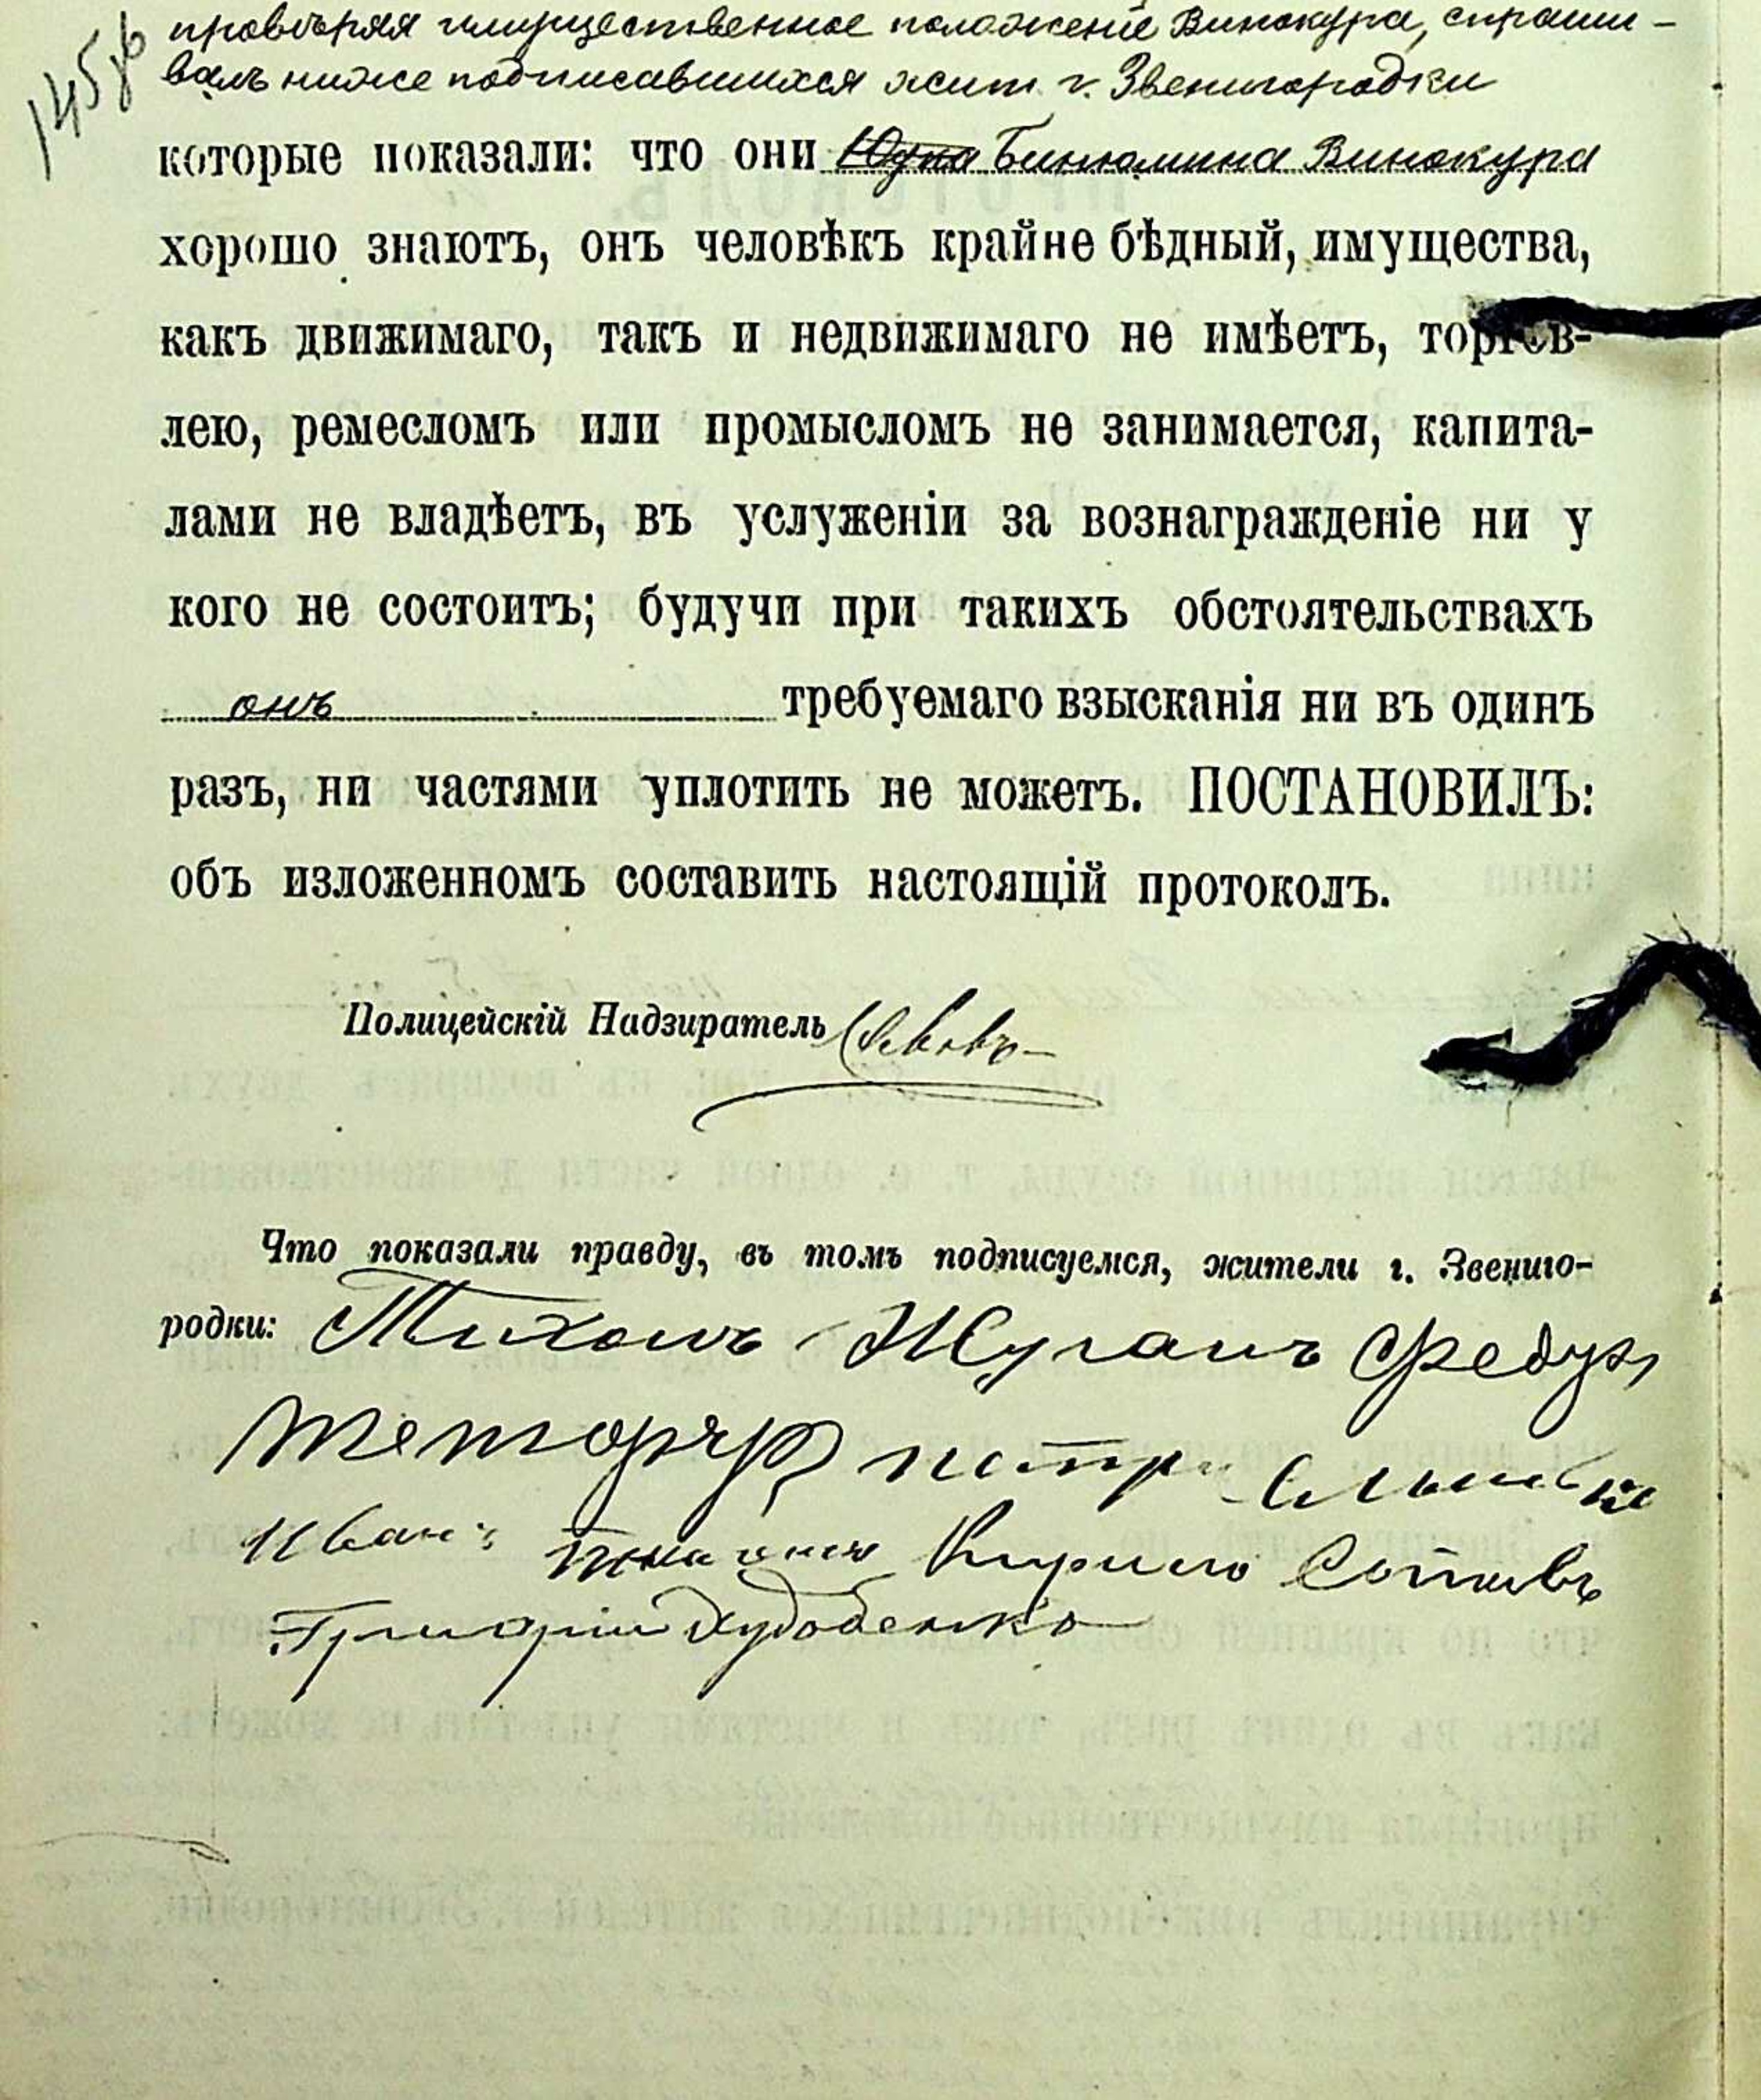 145
провѣряя имущественное положеніе Винокура, спраши-
валъ ниже подписавшихся жит. г. Звенигородки
которые показали: что они Юдка Бинюмина Винокура
хорошо знаютъ, онъ человѣкъ крайне бѣдный, имущества,
какъ движимаго, такъ и недвижимаго не имѣетъ, торгов-
лею, ремесломъ или промысломъ не занимается, капита-
лами не владѣетъ, въ услуженіи за вознагражденіе ни у
кого не состоитъ; будучи при такихъ обстоятельствахъ
онъ требуемаго взысканія ни въ одинъ
разъ, ни частями уплотить не можетъ. ПОСТАНОВИЛЪ:
объ изложенномъ составить настоящій протоколъ.
Полицейскій Надзиратель
Что показали правду, въ томъ подписуемся, жители г. Звениго-
родки: Тихонъ Жуганъ
Иванъ Кирило
Григорій Худобенко